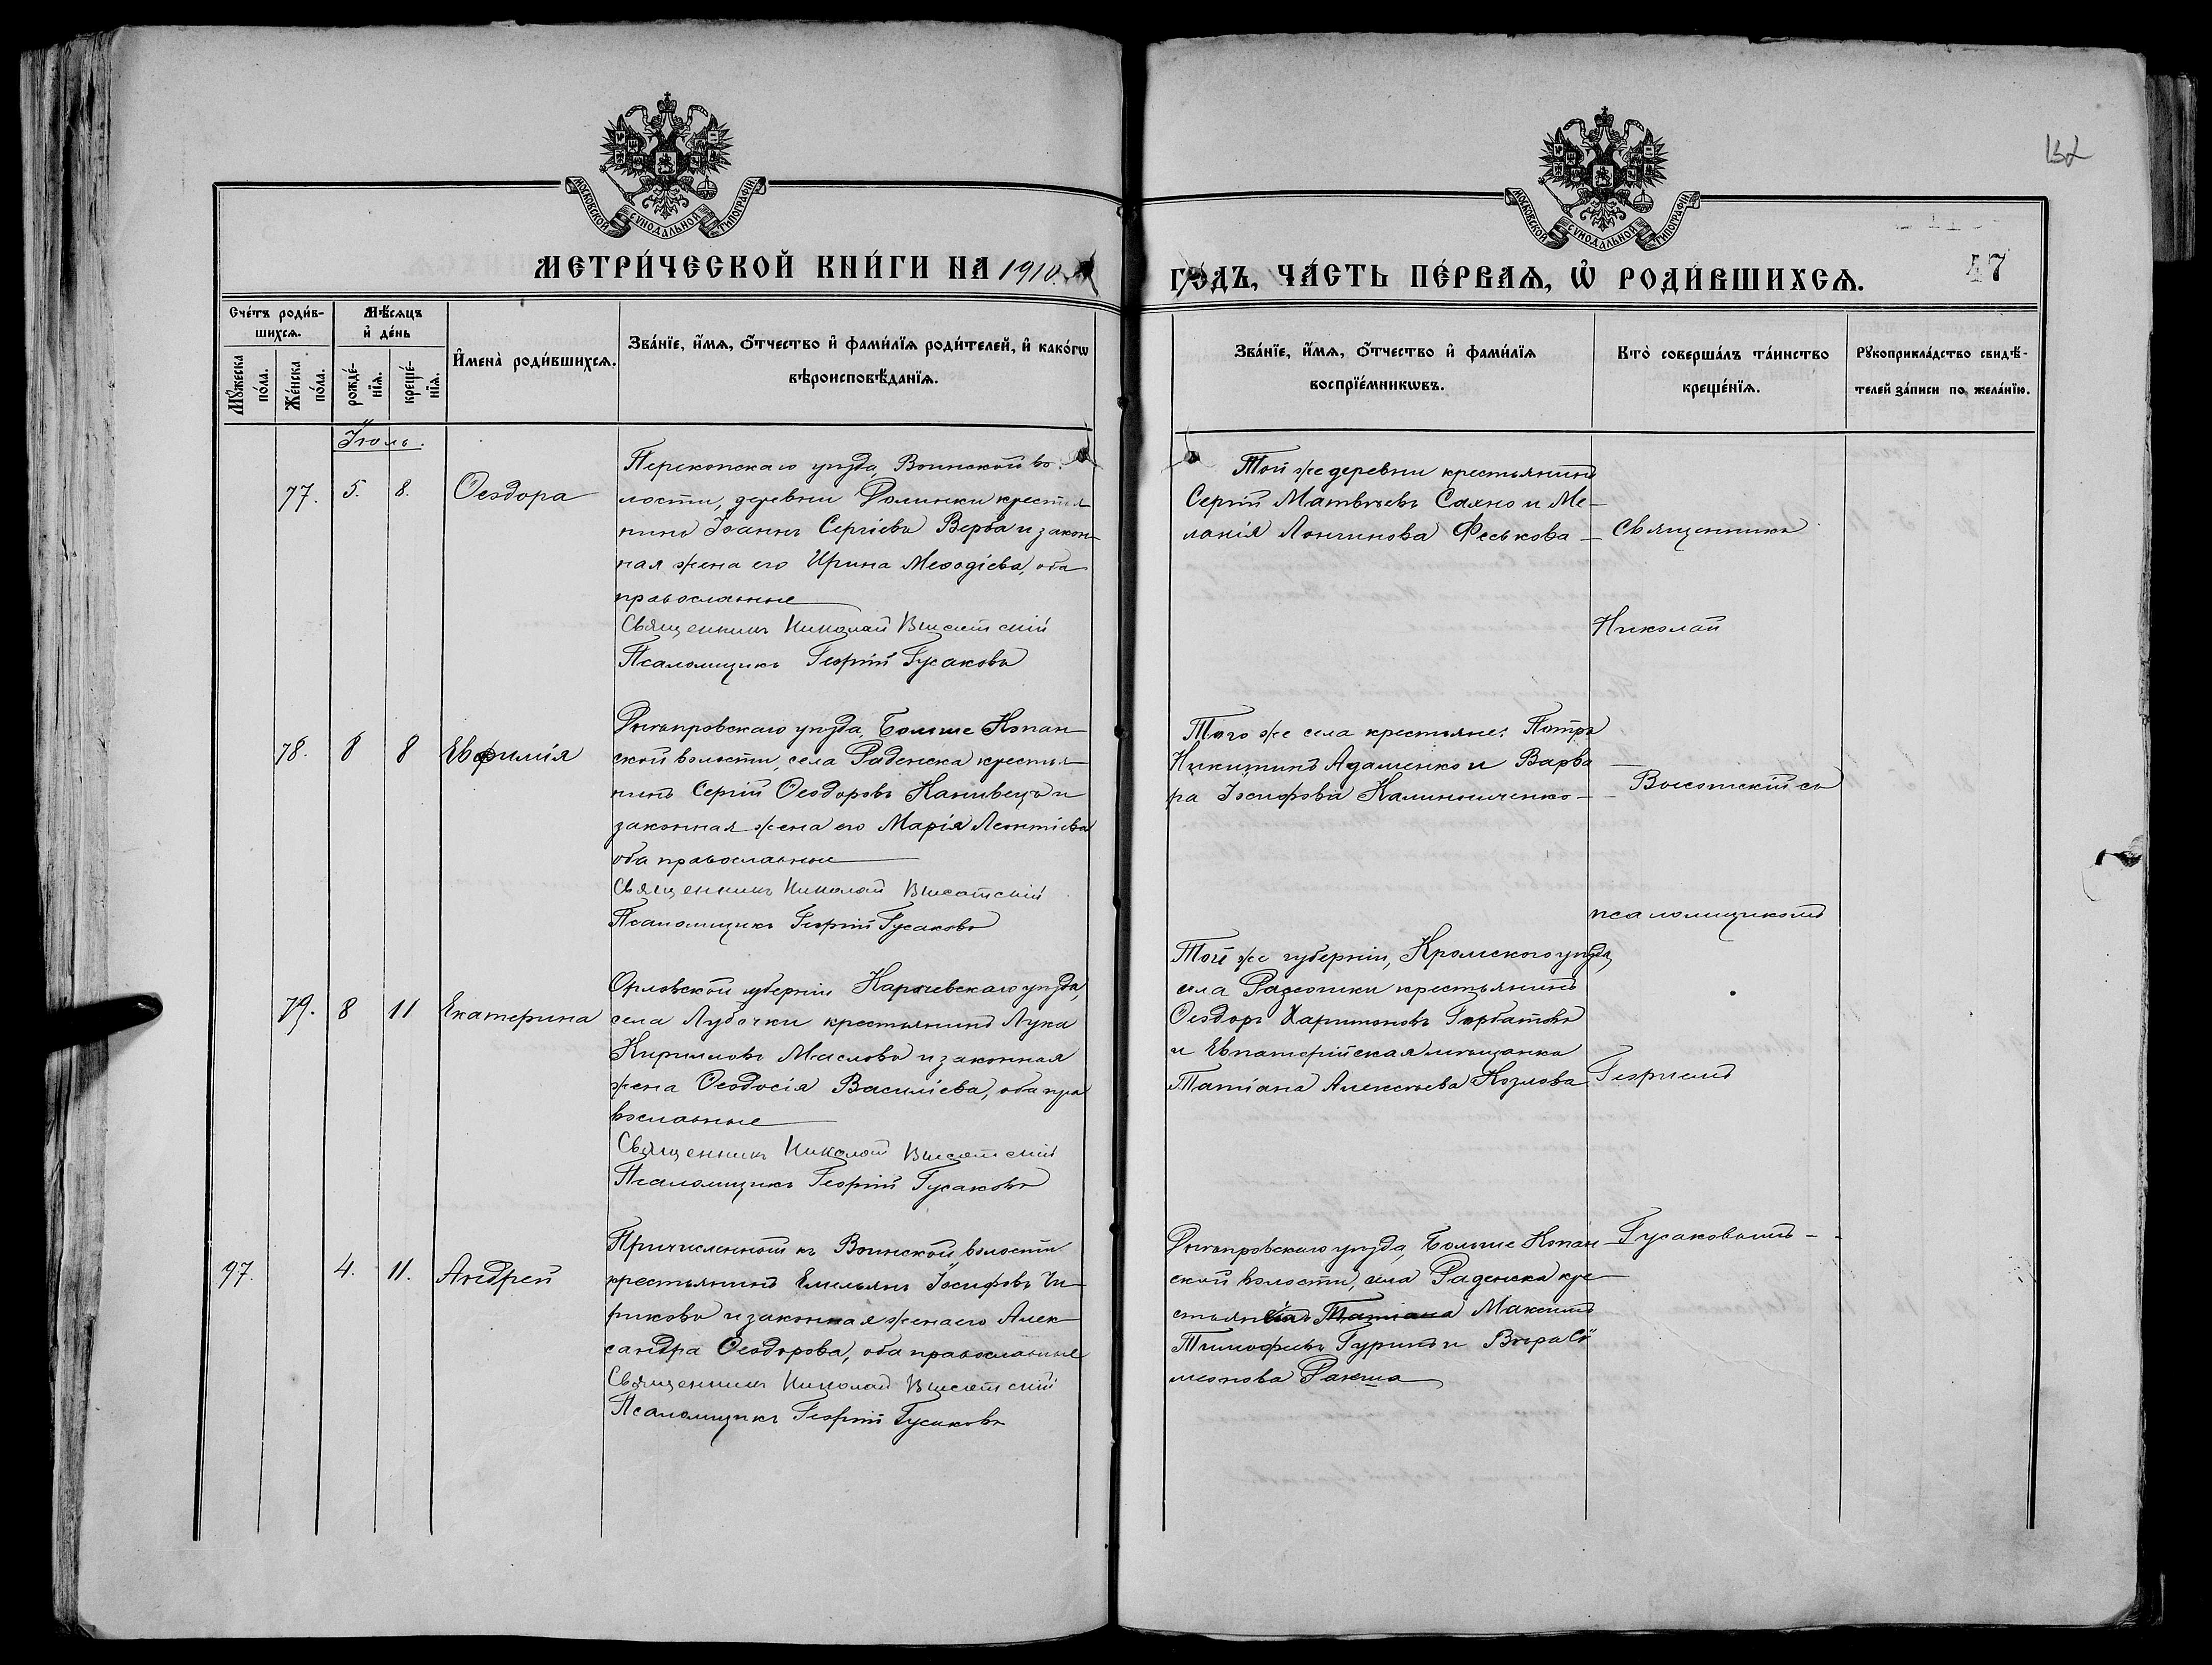 132
МОСКОВСКОЙ СѴНОДАЛЬНОЙ ТИПОГРАФІИ
МОСКОВСКОЙ СѴНОДАЛЬНОЙ ТИПОГРАФІИ
МЕТРИ́ЧЕСКОЙ КНИ́ГИ НА 1910.
ГО́ДЪ, ЧА́СТЬ ПЕ́РВАѦ, Ѽ РОДИ́ВШИХСѦ.
47
Сче́тъ роди́в-
шихсѧ.
Мѣ́сѧцъ
и҆ де́нь
Мꙋ́жеска
по́ла.
Же́нска
по́ла.
рожде́-
нїѧ.
креще́-
нїѧ.
И҆мена̀ роди́вшихсѧ.
Зва́нїе, и҆́мѧ, ѻ҆́тчество и҆ фами́лїѧ роди́телей, и҆ како́гѡ
вѣроисповѣ́данїѧ.
Зва́нїе, и҆́мѧ, ѻ҆́тчество и҆ фами́лїѧ
воспрїе́мникѡвъ.
Кто̀ соверша́лъ та́инство
креще́нїѧ.
Рꙋкоприкла́дство свидѣ́-
телей за́писи по жела́нїю.
Іюль.
77.
5.
8.
Ѳеодора
Перекопскаго уѣзда, Воинской во-
лости, деревни Долинки крестья
нинъ Іоаннъ Сергіевъ Верба и закон-
ная жена его Ирина Меѳодіева, оба
православные
Священникъ Николай Высотскій
Псаломщикъ Георгій Гусаковъ
Той же деревни крестьянинъ
Сергій Матвѣевъ Сахно и Ме-
ланія Лонгинова Феськова
Священникъ
Николай
78.
8
8
Евфимія
Днѣпровскаго уѣзда, Больше Копан
ской волости, села Раденска крестья
нинъ Сергій Ѳеодоровъ Канивецъ и
законная жена его Марія Леонтіева
оба православные
Священникъ Николай Высотскій
Псаломщикъ Георгій Гусаковъ
Того же села крестьяне: Петръ
Никитинъ Адаменко и Варва
ра Іосифова Калиниченко
Высотскій съ
псаломщикомъ
79.
8
11
Екатерина
Орловской губерніи Карачевскаго уѣзда,
села Лубочки крестьянинъ Лука
Кирилловъ Масловъ и законная
жена Ѳеодосія Василіева, оба пра
вославные
Священникъ Николай Высотскій
Псаломщикъ Георгій Гусаковъ
Той же губерніи, Кромскаго уѣзда,
села крестьянинъ
Ѳеодоръ Харитоновъ Горбатовъ
и Евпаторійская мѣщанка
Татіана Алексѣева Козлова
Георгіемъ
97.
4.
11.
Андрей
Причисленный къ Воинской волости
крестьянинъ Емельянъ Іосифовъ Чи-
риковъ и законная жена его Алек
сандра Ѳеодорова, оба православные
Священникъ Николай Высотскій
Псаломщикъ Георгій Гусаковъ
Днѣпровскаго уѣзда, Больше Копан
ской волости, села Раденска кре
стьяне Татіана Максимъ
Тимофеевъ Гуринъ и Вѣра Си
меонова Ракша
Гусаковымъ